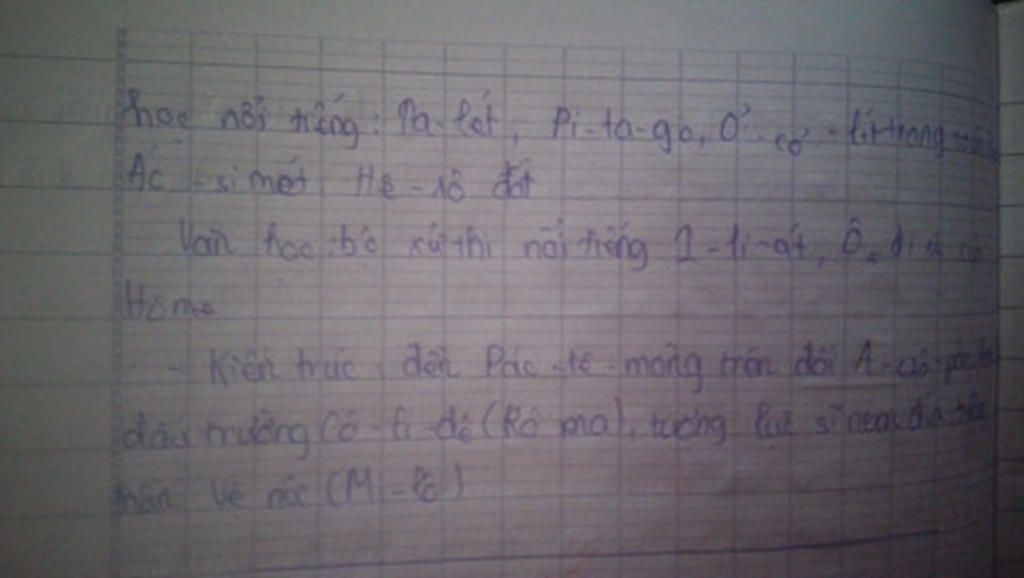 học nổi tiếng: Ta-lét, Pi-ta-go, Ơ-cơ-lít trong
Ác-si mét, Hê-rô đốt
Văn học: bộ sử thi nổi tiếng I-li-át, Ô-đi-xê của
Hôme
- Kiến trúc: đền Pác-tê-nông trên đồi A-crô-pôn
đấu trường Cô-li-dê (Rô ma), tượng lực sĩ ném đĩa
thần Vệ nữ (Mi-lô)